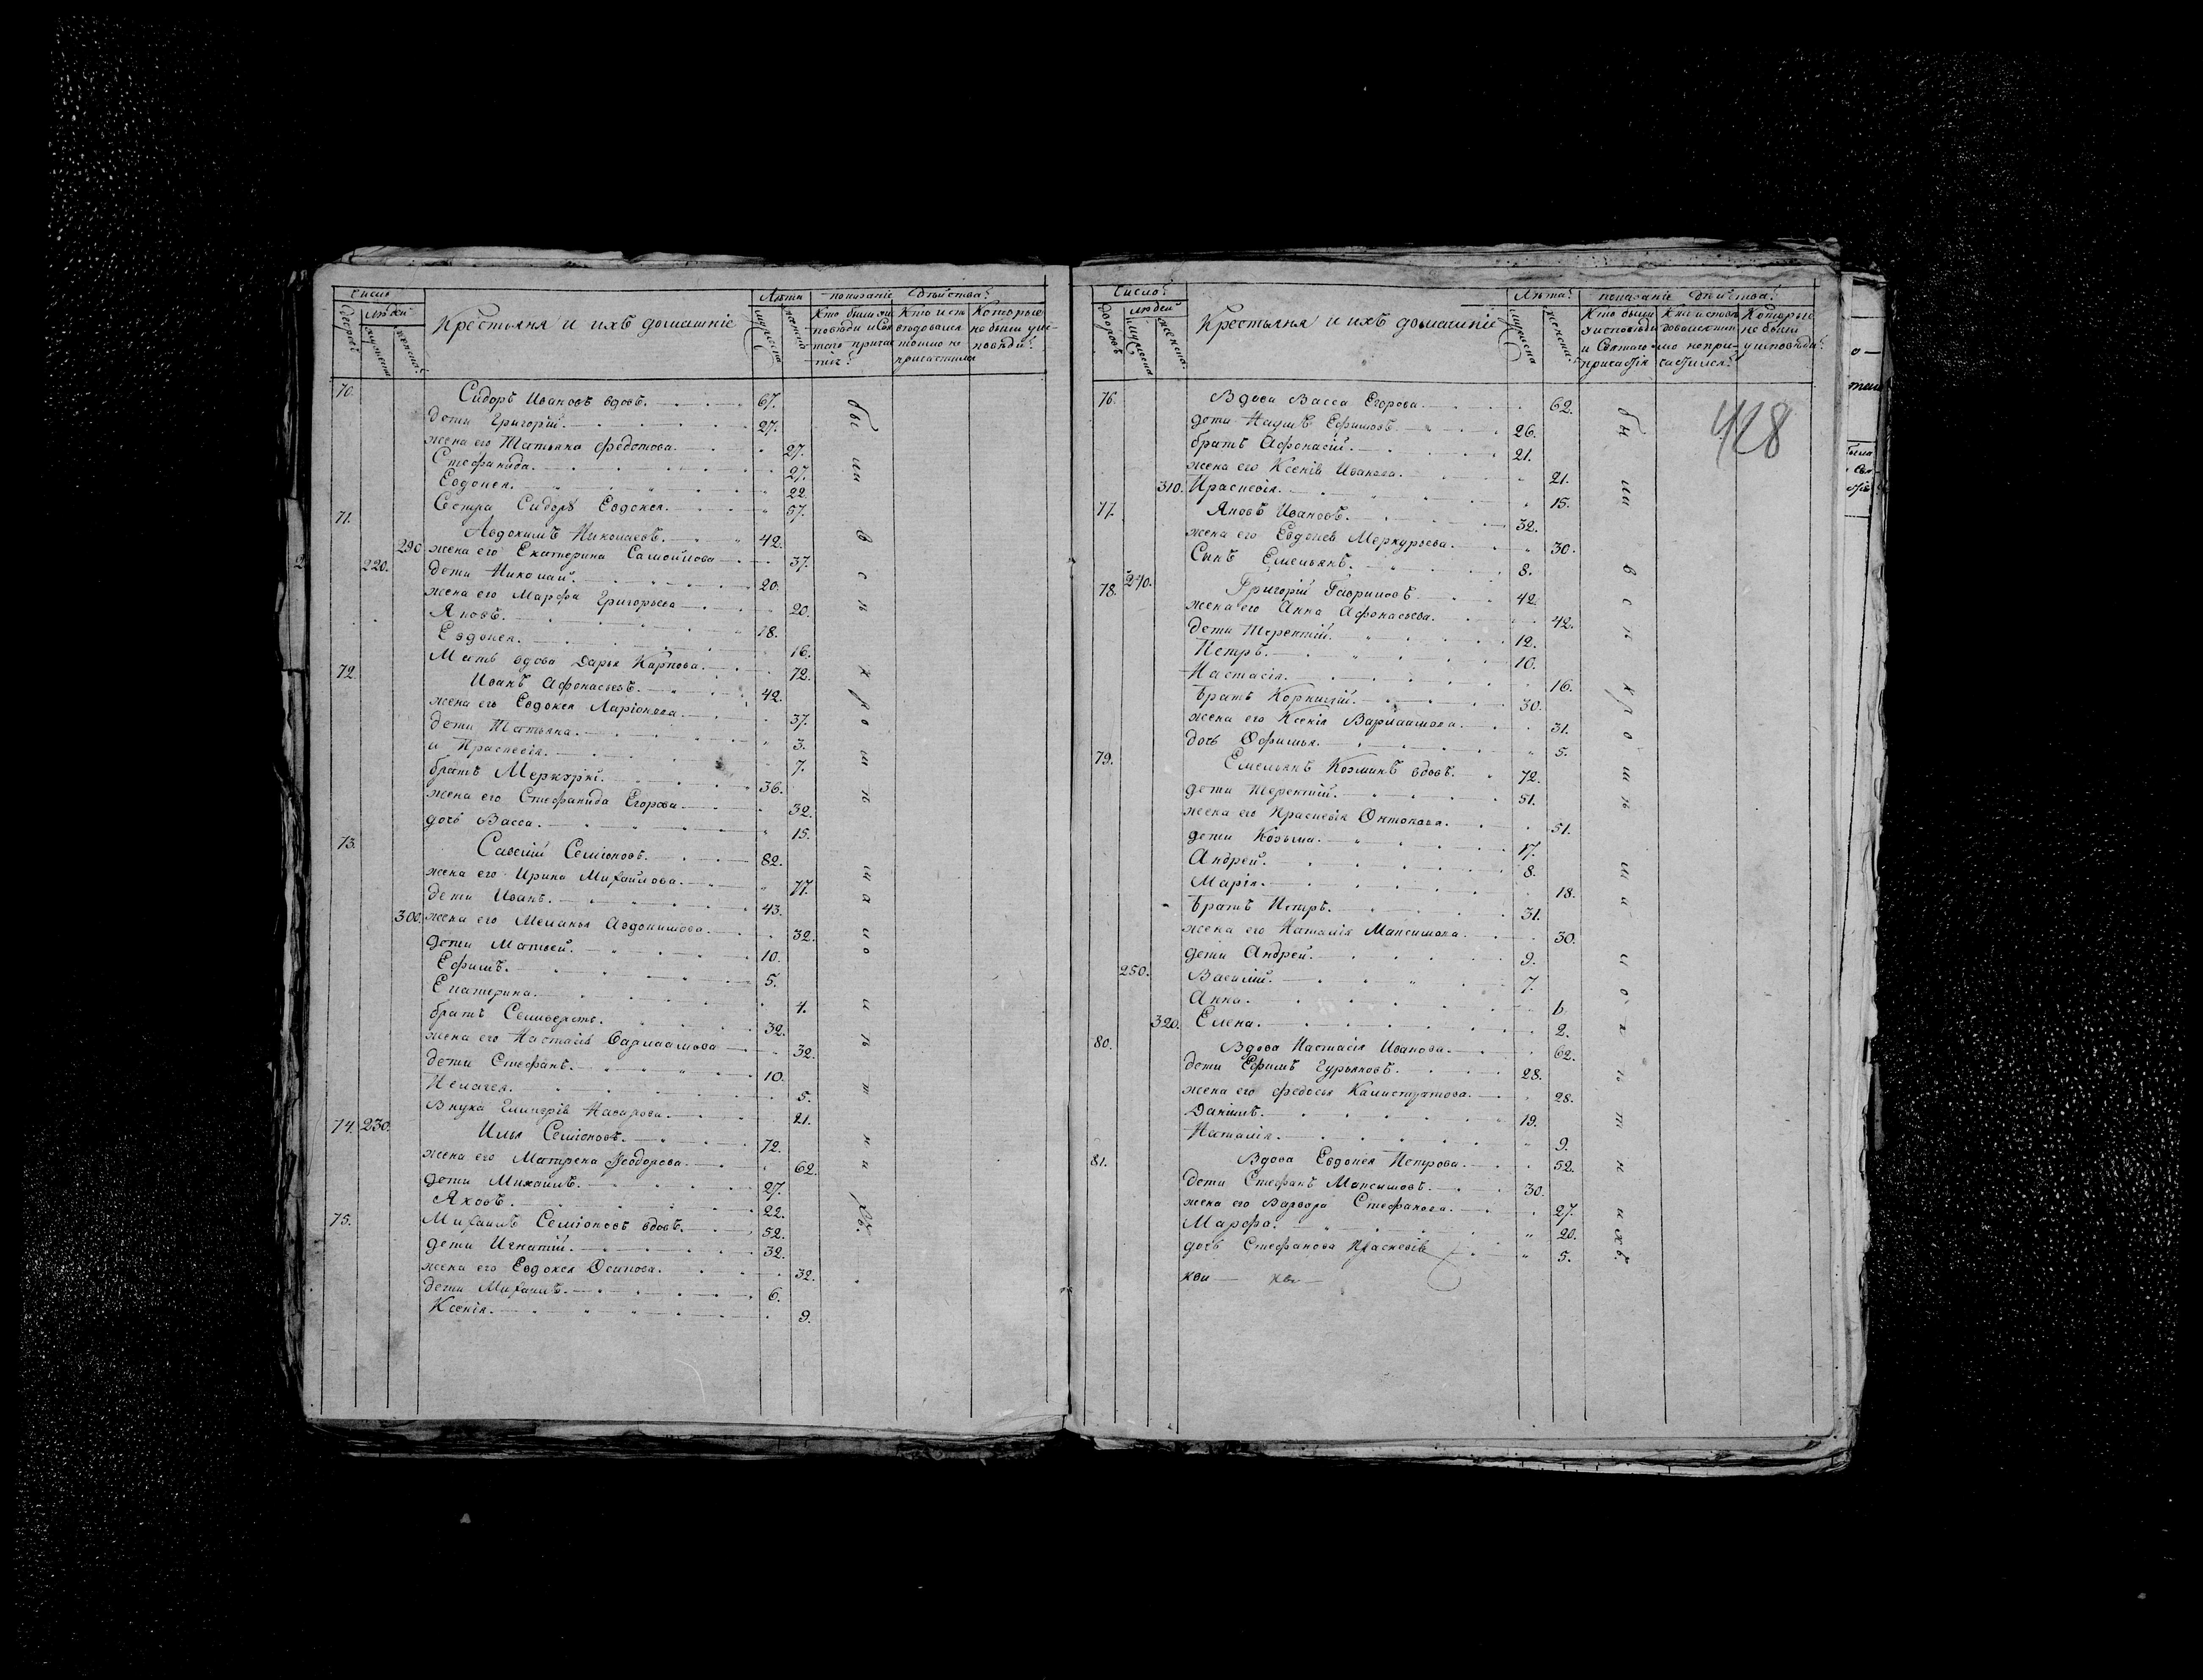 Число
Лѣта
показанiе дѣйства:
дворовъ
людей
мужеска
женска:
Крестьяня и ихъ домашнiе
мужеска
женска
Кто были у исповѣди и святаго причастiя:
Кто исповѣдовался токмо не причастился
Которые не были у исповѣди:
70. Сидоръ Ивановъ вдовъ. 67.
дети Григорiй. 27.
жена его Татьяна Федотова. 27.
Стефанида. 27.
Евдокея. 22.
Сестра Сидорѣ Евдокея. 57.
71. Авдокимъ Николаевъ. 42.
290 жена его Екатерина Самойлова 37.
220. дети Николай. 20.
жена его Марфа Григорьева 20.
Яковъ. 18.
Евдокея. 16.
Мать вдова Дарья Карпова. 72.
72. Иванъ Афонасьевъ. 42.
жена его Евдокея Ларiонова. 37.
дети Татьяна. 3.
и Праскевiя. 7.
братъ Меркурiй. 36.
жена его Стефанида Егорова 32.
дочь Васса. 15.
73. Савелiй Семiоновъ. 82.
жена его Ирина Михайлова. 77.
дети Иванъ. 43.
300. жена его Меланья Авдокимова. 32.
дети Матвей. 10.
Ефимъ. 5.
Екатерина. 4.
братъ Селиверстъ. 32.
жена его Настасiя Варлаамова 32.
дети Стефанъ. 10.
Пелагея. 5.
Внука Гликерiя Назарова. 21.
74. 230. Илья Семiоновъ. 72.
жена его Матрена Федорова. 62.
дети Михаилъ. 27.
Яковъ. 22.
75. Михаилъ Семiоновъ вдовъ. 52.
дети Игнатiй. 32.
жена его Евдокея Осипова. 32.
дети Михаилъ. 6.
Ксенiя. 9.
бы ли в с ѣ к р о м ѣ м а л о л ѣ т н и хъ.
Число:
Лѣта:
показанiе дѣйства:
дворовъ
людей
мужеска
женска:
Крестьяня и ихъ домашнiе
мужеска
женска:
Кто были у исповѣди и Святаго причастiя
Кто исповѣдовался токмо не причастился:
Которые не были у исповѣди:
428
76. Вдова Васса Егорова. 62.
дети Наумъ Ефимовъ. 26.
братъ Афонасiй. 21.
жена его Ксенiя Иванова. 21.
310. Праскевiя. 15.
77. Яковъ Ивановъ. 32.
жена его Евдокея Меркурьева. 30.
Сынъ Емельянъ. 8.
78. 240. Григорiй Гавриловъ 42.
жена его Анна Афонасьева. 42.
дети Терентiй. 12.
Петръ. 10.
Настасiя. 16.
братъ Корнилiй. 30.
жена его Ксенiя Варлаамова. 31.
дочь Офимья. 5.
79. Емельянъ Козминъ вдовъ. 72.
дети Терентiй. 51.
жена его Праскевiя Онтонова. 51.
дети Козьма. 17.
Андрей. 8.
Марiя. 18.
братъ Петръ. 31.
жена его Наталiя Максимова. 30.
дети Андрей. 9.
250. Василiй. 7.
Анна. 6
320. Елена. 2.
80. Вдова Настасiя Иванова. 62.
дети Ефимъ Гурьяновъ. 28.
жена его Федосья Калистратова. 28.
Данiилъ. 19.
Наталiя. 9.
81. Вдова Евдокея Петрова. 52.
дети Стефанъ Максимовъ. 30.
жена его Варвара Стефанова. 27.
Марфа. 20.
дочь Стефанова Праскевiя 5.
бы ли в с ѣ к р о м ѣ м а л о л ѣ т н ихъ.